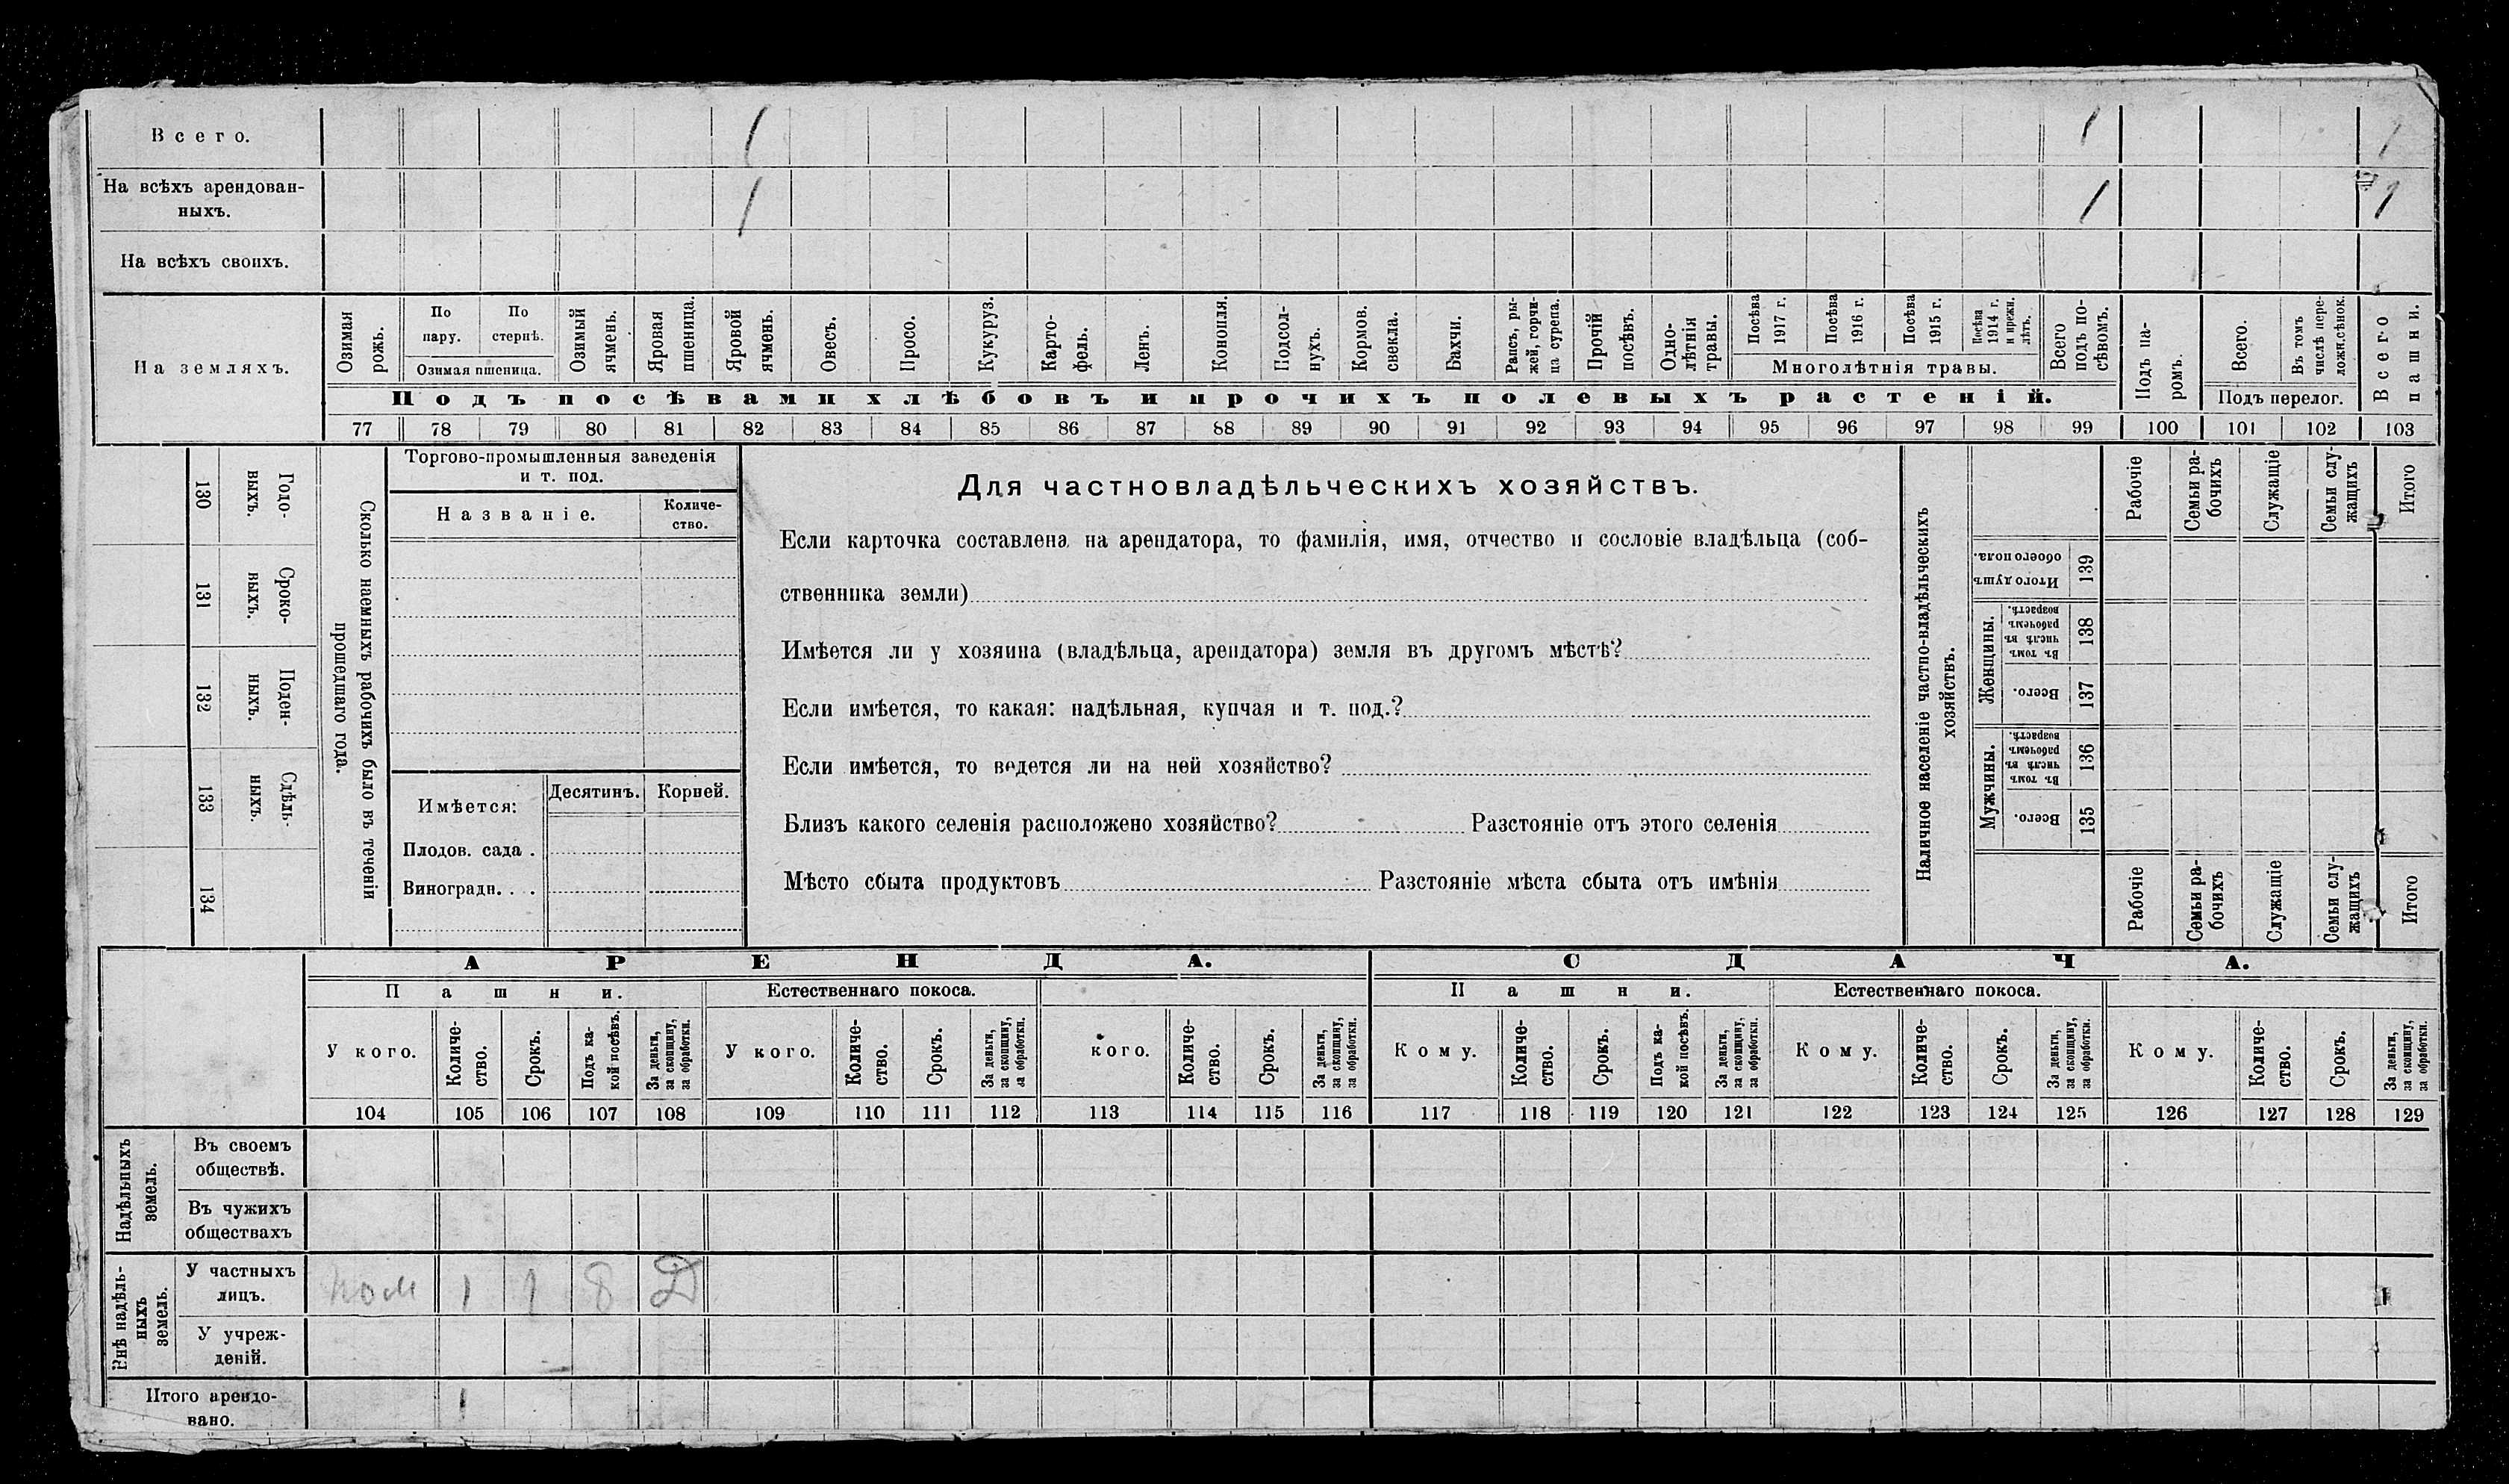 Всего. 1 1 1
На всѣхъ арендован-
ныхъ. 1 1 1
На всѣхъ своихъ.
На земляхъ.
Озимая рожь.
По пару.
По стернѣ.
Озимая пшеница.
Озимый ячмень.
Яровая пшеница.
Яровой ячмень.
Овесъ.
Просо.
Кукуруз.
Карто-
фель.
Ленъ.
Конопля.
Подсол-
нухъ.
Кормов. свекла.
Бахчи.
Рапсъ, ры-
жей, горчи-
ца сурепа.
Прочій посѣвъ.
Одно-
лѣтнія травы.
Посѣва 1917 г.
Посѣва 1916 г.
Посѣва 1915 г.
Посѣва 1914 г. и прежн. лѣтъ.
Многолѣтнія травы.
Всего подъ по-
сѣвомъ.
Подъ посѣвами хлѣбовъ и прочихъ полевыхъ растеній.
Подъ па-
ромъ.
Всего.
Въ томъ числѣ пере-
ложн.сѣнок.
Подъ перелог.
Всего пашни.
77 78 79 80 81 82 83 84 85 86 87 88 89 90 91 92 93 94 95 96 97 98 99 100 101 102 103
130 Годо-
выхъ.
131 Сроко-
выхъ.
132 Поден-
ныхъ.
133 Сдѣль-
ныхъ.
134
Сколько наемныхъ рабочихъ было въ теченіи
прошедшаго года.
Торгово-промышленныя заведенія
и т. под.
Названіе.
Количе-
ство.
Имѣется:
Десятинъ. Корней.
Плодов. сада .
Виноградн. . .
Для частновладѣльческихъ хозяйствъ.
Если карточка составлена на арендатора, то фамилія, имя, отчество и сословіе владѣльца (соб-
ственника земли)
Имѣется ли у хозяина (владѣльца, арендатора) земля въ другомъ мѣстѣ?
Если имѣется, то какая: надѣльная, купчая и т. под.?
Если имѣется, то ведется ли на ней хозяйство?
Близъ какого селенія расположено хозяйство? Разстояніе отъ этого селенія
Мѣсто сбыта продуктовъ Разстояніе мѣста сбыта отъ имѣнія
Наличное населеніе частно-владѣльческихъ
хозяйствъ.
Рабочіе
Семьи ра-
бочихъ
Служащіе
Семьи слу-
жащихъ
Итого
Итого душъ обоего пола. 139
Женщины.
Въ томъ числѣ въ рабочемъ возрастѣ. 138
Всего. 137
Мужчины.
Въ томъ числѣ въ рабочемъ возрастѣ. 136
Всего. 135
Рабочіе
Семьи ра-
бочихъ
Служащіе
Семьи слу-
жащихъ
Итого
АРЕНДА. СДАЧА.
Пашни. Естественнаго покоса. Пашни. Естественнаго покоса.
У кого.
Количе-
ство.
Срокъ.
Подъ ка-
кой посѣвъ.
За деньги,
за скопщину,
за обработки.
У кого.
Количе-
ство.
Срокъ.
За деньги,
за скопщину,
за обработки.
кого.
Количе-
ство.
Срокъ.
За деньги,
за скопщину,
за обработки.
Кому.
Количе-
ство.
Срокъ.
Подъ ка-
кой посѣвъ.
За деньги,
за скопщину,
за обработки.
Кому.
Количе-
ство.
Срокъ.
За деньги,
за скопщину,
за обработки.
Кому.
Количе-
ство.
Срокъ.
За деньги,
за скопщину,
за обработки.
104 105 106 107 108 109 110 111 112 113 114 115 116 117 118 119 120 121 122 123 124 125 126 127 128 129
Надѣльныхъ
земель.
Въ своемъ
обществѣ.
Въ чужихъ
обществахъ
Внѣ надѣль-
ныхъ
земель.
У частныхъ
лицъ. 1 1 8 Д
У учреж-
деній.
Итого арендо-
вано. 1